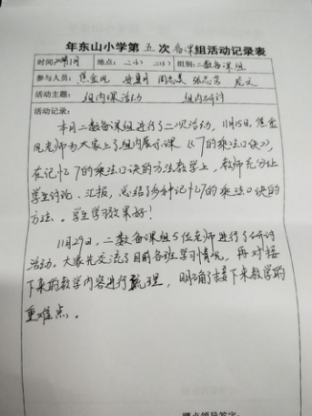 年东山小学第五次备课组活动记录表
时间 11月 地点：二(4) 二(5) 组别：二数备课组
参与人员：焦金凤
活动主题：组内课活动 组内研讨
活动记录：
本月二数备课组进行了二次活动，11月15日，焦金
凤老师为大家上了组内展示课《7的乘法口诀》，
在记忆7的乘法口诀的方法教学上，教师充分让
学生讨论、汇报，总结了多种记忆7的乘法口诀的
方法。学生学习效果好！
11月29日，二数备课组5位老师进行了研讨
活动。大家先交流了目前各班学习情况，再对接
下来的教学内容进行梳理，明确了接下来教学的
重难点。